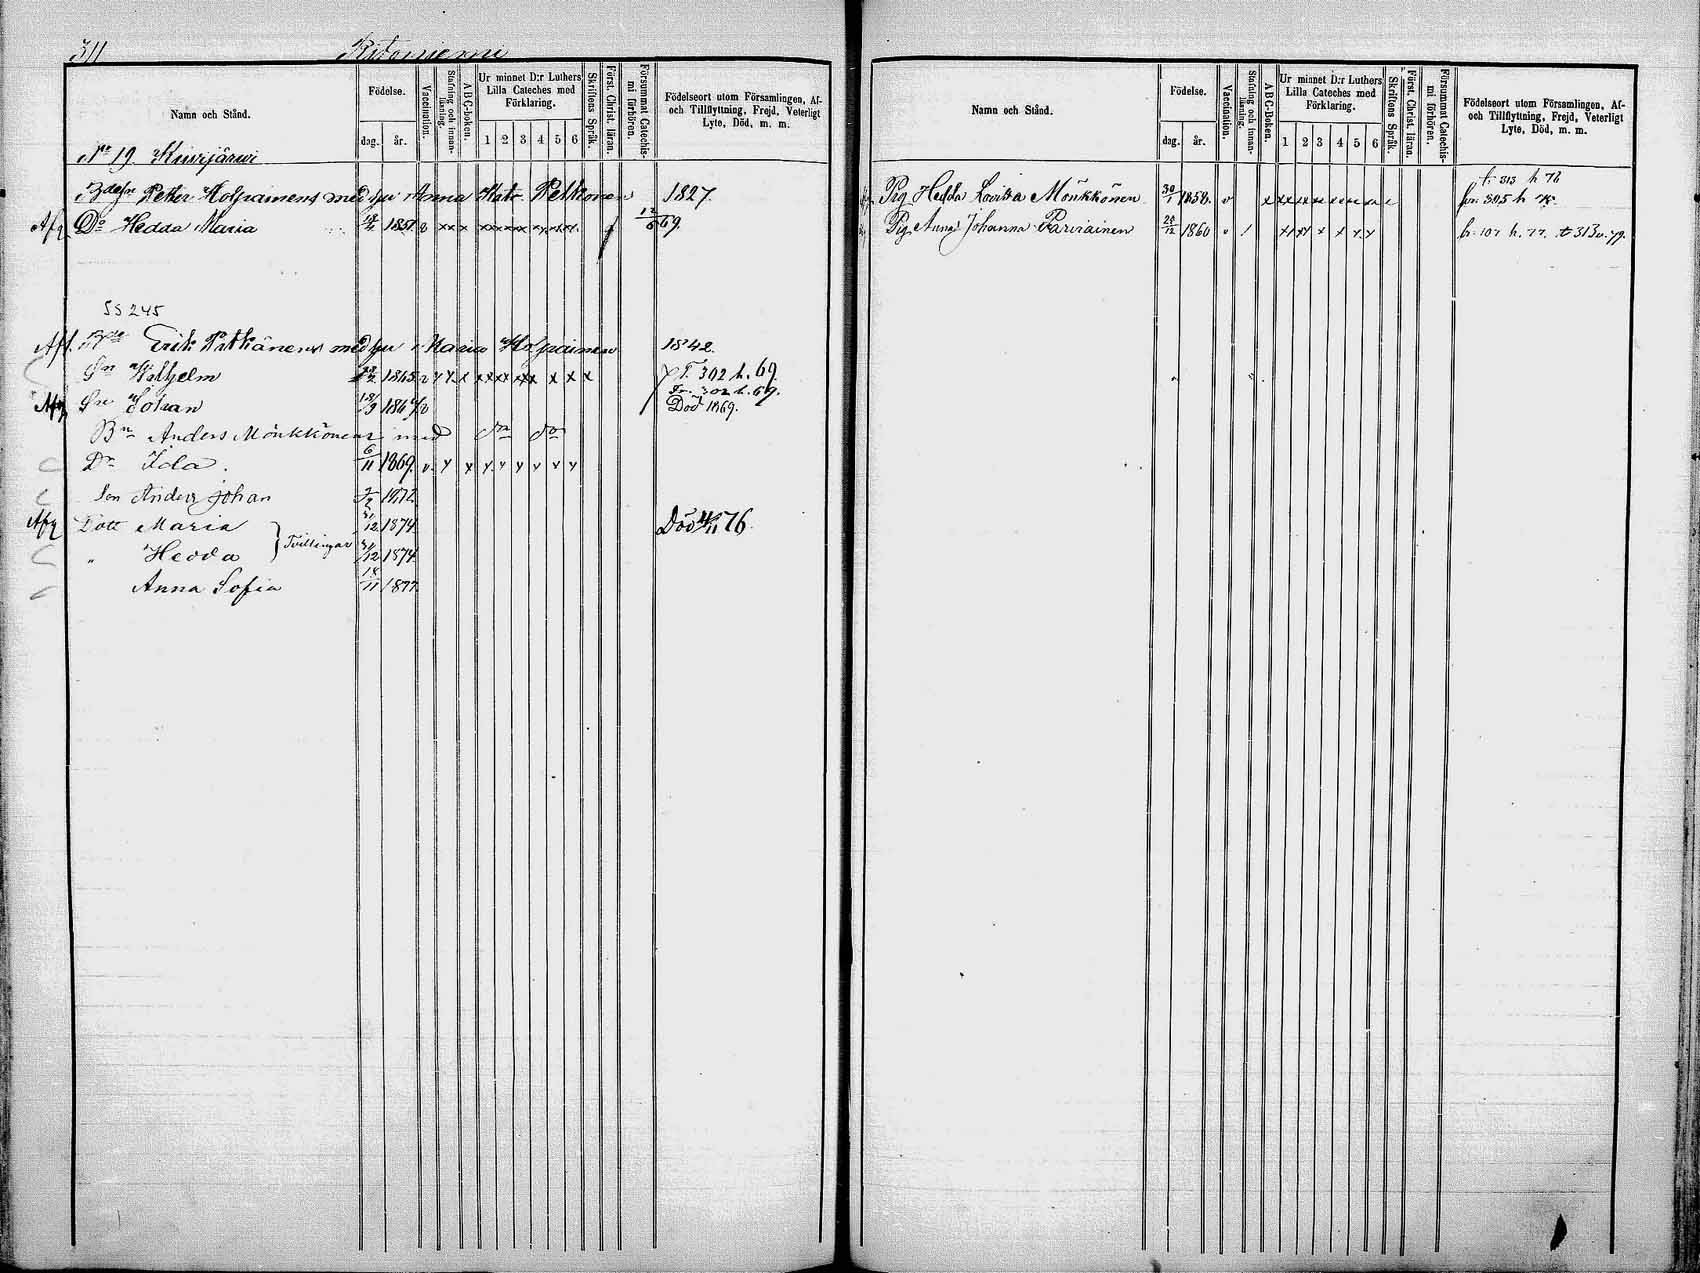 311 Ritoniemi
Namn och Stånd.
Födelse.
dag. år.
Vaccination.
Stafning och innanläsning.
ABC-boken.
Ur minnet D:r Luthers Lilla Cateches med Förklaring.
1 2 3 4 5 6
Skriftens Språk.
Först. Christ. läran.
Försummat Catechismi förhören.
Födelseort utom Församlingen, Af- och Tillflyttning, Frejd, Veterligt Lyte, Död, m. m.
No 19. Kiwijärwi
Petter Holpainens med hu Anna Katr. Petkonen 1827.
Afg Dr Hedda Maria 1851 v xx x xx xx xx x x x 12/6 69.
SS 245
Afl. Erik Pitkänens med hu Maria Holpainen 1842.
Sn Wilhelm 1865 v x x x T. 302 h. 69.
Afg Sn Johan 18/9 1867 v Fr. 302 h. 69. Död 1869.
Bn Anders Mönkkönens med do do
Dr Ida. 6/11 1869. v. x x x x x x x x
Son Anders Johan 1872
Afg Dott Maria 31/12 1874 Död 76.
" Hedda } Tvillingar 31/12 1874
Anna Sofia 14/11 1877.
Namn och Stånd.
Födelse.
dag. år.
Vaccination.
Stafning och innanläsning.
ABC-Boken.
Ur minnet D:r Luthers Lilla Cateches med Förklaring.
1 2 3 4 5 6
Skriftens Språk.
Först. Christ. läran.
Försummat Catechismi förhören.
Födelseort utom Församlingen, Af- och Tillflyttning, Frejd, Veterligt Lyte, Död, m. m.
t. 313 h 76
Pig Hedda Lovisa Mönkkönen 30/1 1858. v x xx xx fr. 305 h 75.
Pig. Anna Johanna Parviainen 1860 v / xx xx x x x x fr. 107 h. 77. t 313 v. 79.